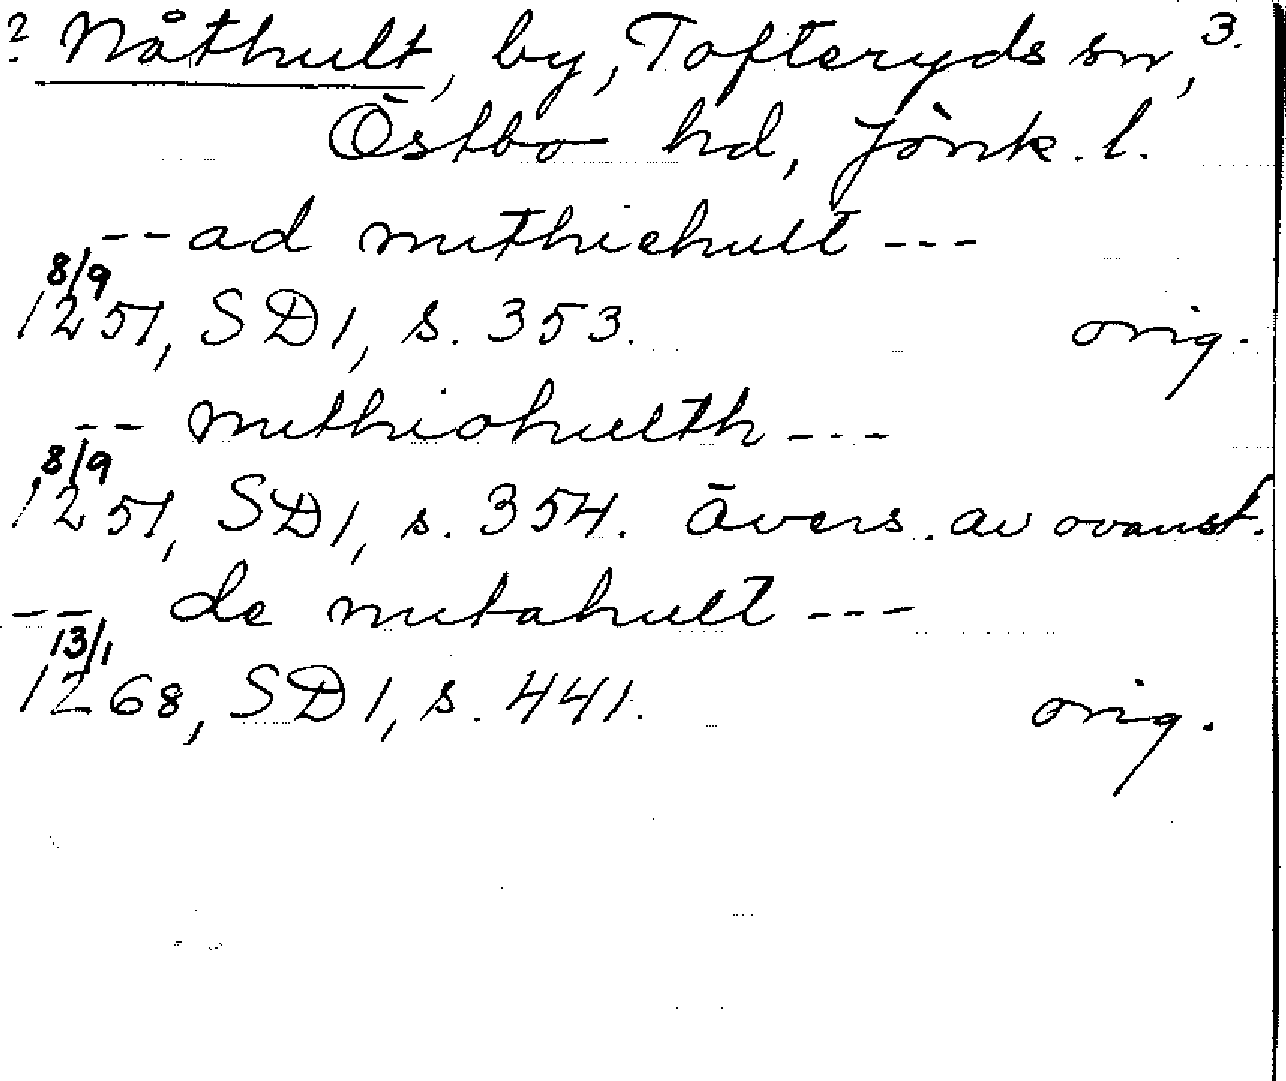 ? Nåthult, by, Tofteryds sn, 3.
Östbo hd, Jönk. l.
-- ad nuthiehult ---
8/9
1251, SD 1, s. 353. orig.
-- nuthiohulth ---
8/9
1251, SD 1, s. 354. Övers. av ovanst.
-- de nutahult ---
13/1
1268, SD 1, s. 441. orig.